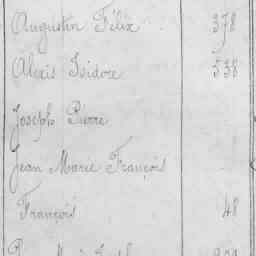 Augustin Félix 378
Alexis Isidore 538
Joseph Pierre
Jean Marie François
François 48